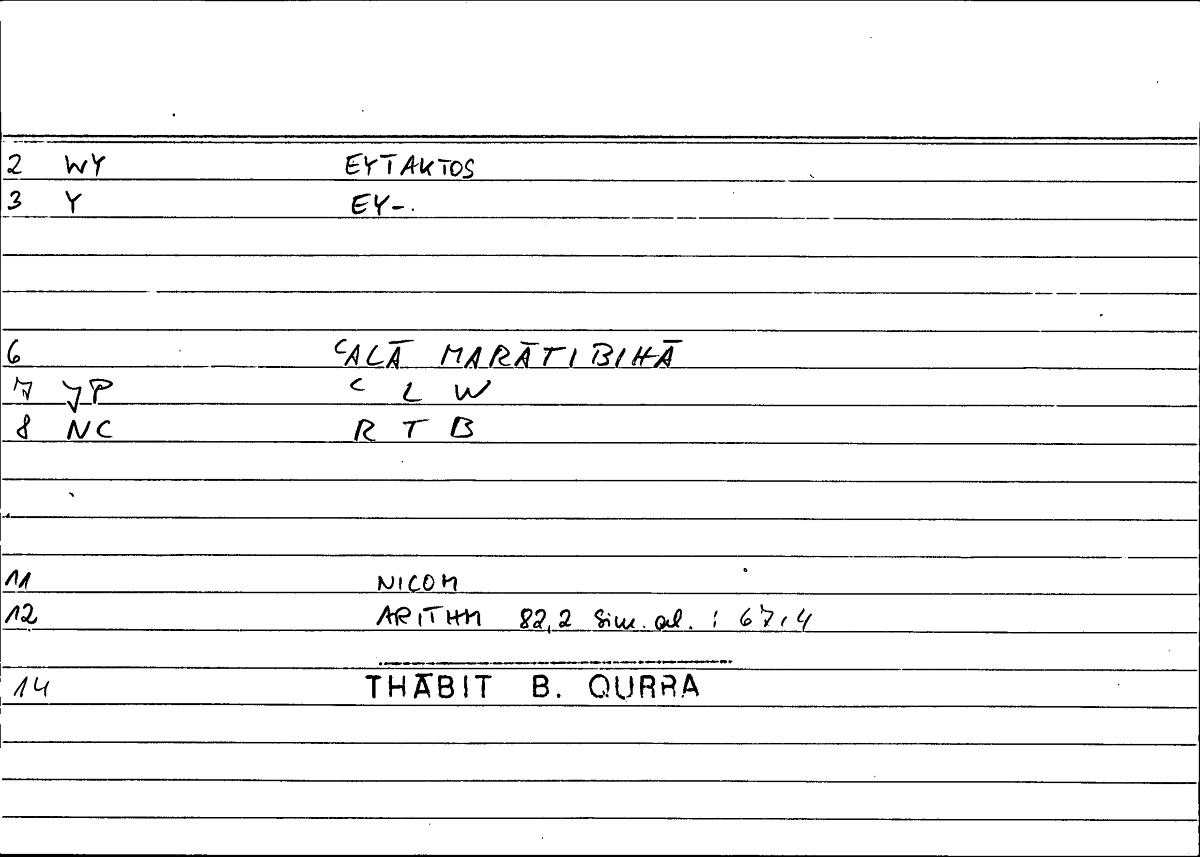 2 WY EYTAKTOS
3 Y EY-.
6 ʿALĀ MARĀTIBIHĀ
7 JP ʿ L W
8 NC R T B
11 NICOM
12 ARITHM 82,2 sim. al. : 67,4
14 THĀBIT B. QURRA